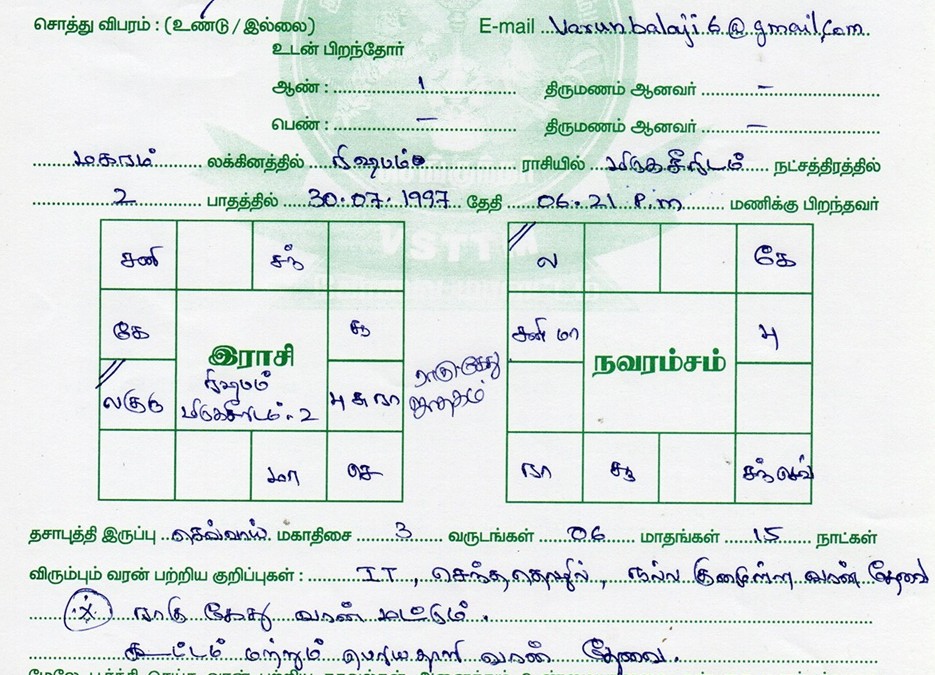 சொத்து விபரம் : (உண்டு / இல்லை) E-mail Varunbalaji6@gmail.com
உடன் பிறந்தோர்
ஆண் : 1 திருமணம் ஆனவர் –
பெண் : – திருமணம் ஆனவர் –
மகரம் லக்கினத்தில் ரிஷபம் ராசியில் மிருகசீரிடம் நட்சத்திரத்தில்
2 பாதத்தில் 30.07.1997 தேதி 06.21 P.m மணிக்கு பிறந்தவர்
சனி சந் ல கே
கே சூ சனி மா பு
இராசி நவரம்சம்
VSTTM
ரிஷபம்
மிருகசீரிடம் - 2
லகுரு பு சு ரா ராகுகேது
ஜாதகம்
மா செ ரா சூ
தசாபுத்தி இருப்பு செவ்வாய் மகாதிசை 3 வருடங்கள் 06 மாதங்கள் 15 நாட்கள்
விரும்பும் வரன் பற்றிய குறிப்புகள் : IT, சொந்ததொழில், நல்ல குணமுள்ள வரன் தேவை
ராகு கேது வரன் மட்டும்.
மற்றும் வரன் தேவை.